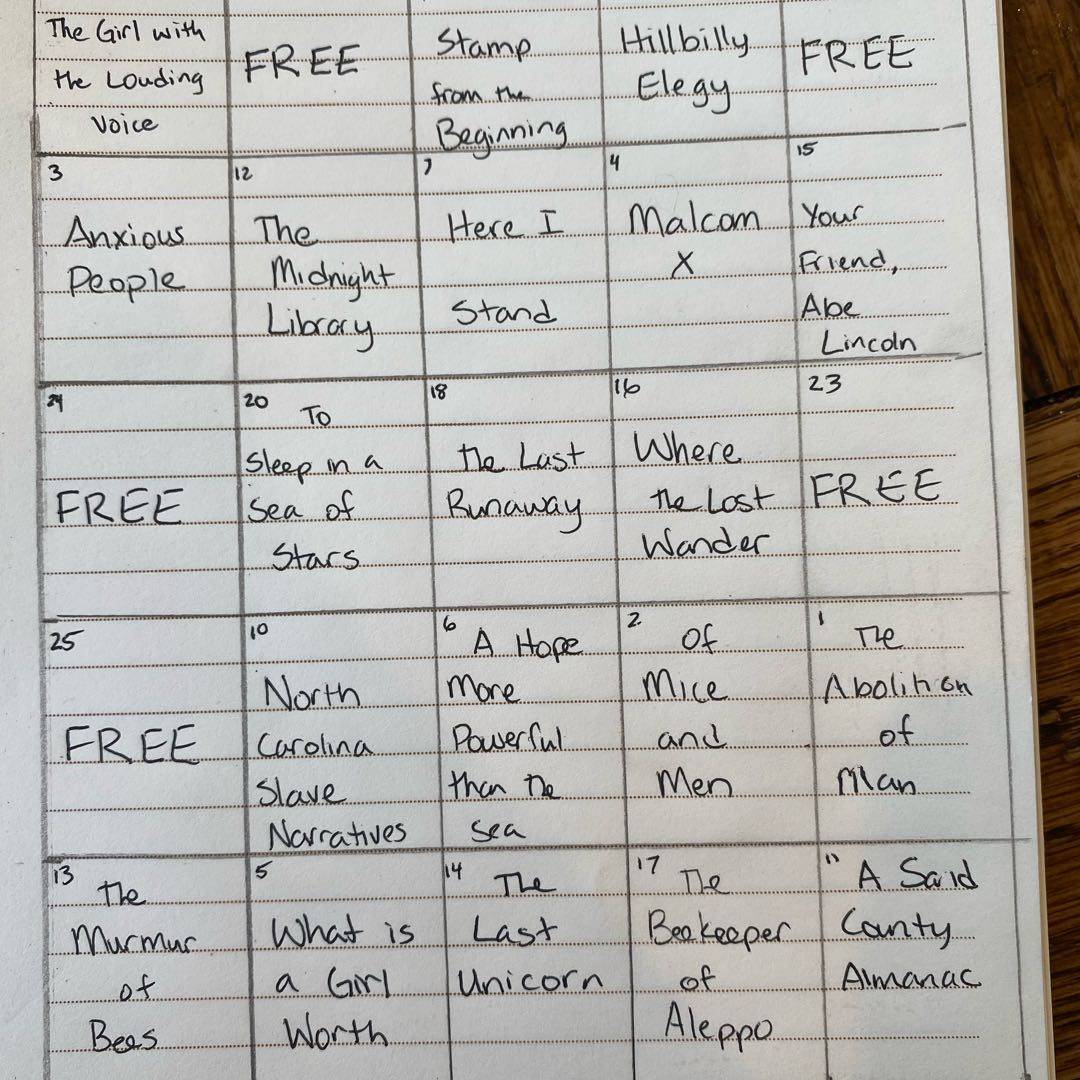 The Girl with
the Louding
Voice
FREE
Stamp
from the
Beginning
Hillbilly
Elegy
FREE
3
Anxious
People
12
The
Midnight
Library
7
Here I
Stand
4
Malcom
X
15
Your
Friend,
Abe
Lincoln
24
FREE
20
To
Sleep in a
Sea of
Stars
18
the Last
Runaway
16
Where
the Lost
Wander
23
FREE
25
FREE
10
North
Carolina
Slave
Narratives
6
A Hope
More
Powerful
than the
sea
2
Of
Mice
and
Men
1
The
Abolition
of
Man
13
The
Murmur
of
Bees
5
What is
a Girl
Worth
14
The
Last
Unicorn
17
The
Beekeeper
of
Aleppo
11
A Sand
County
Almanac